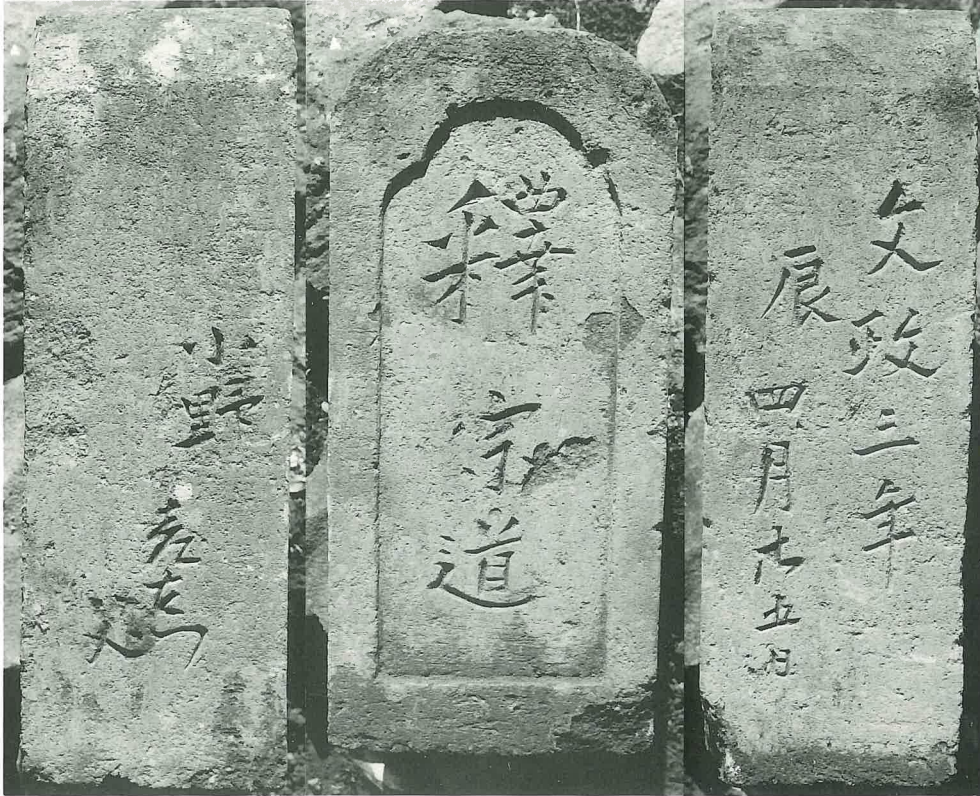 文政三年
辰 四月廿五日
釋宗道
小野